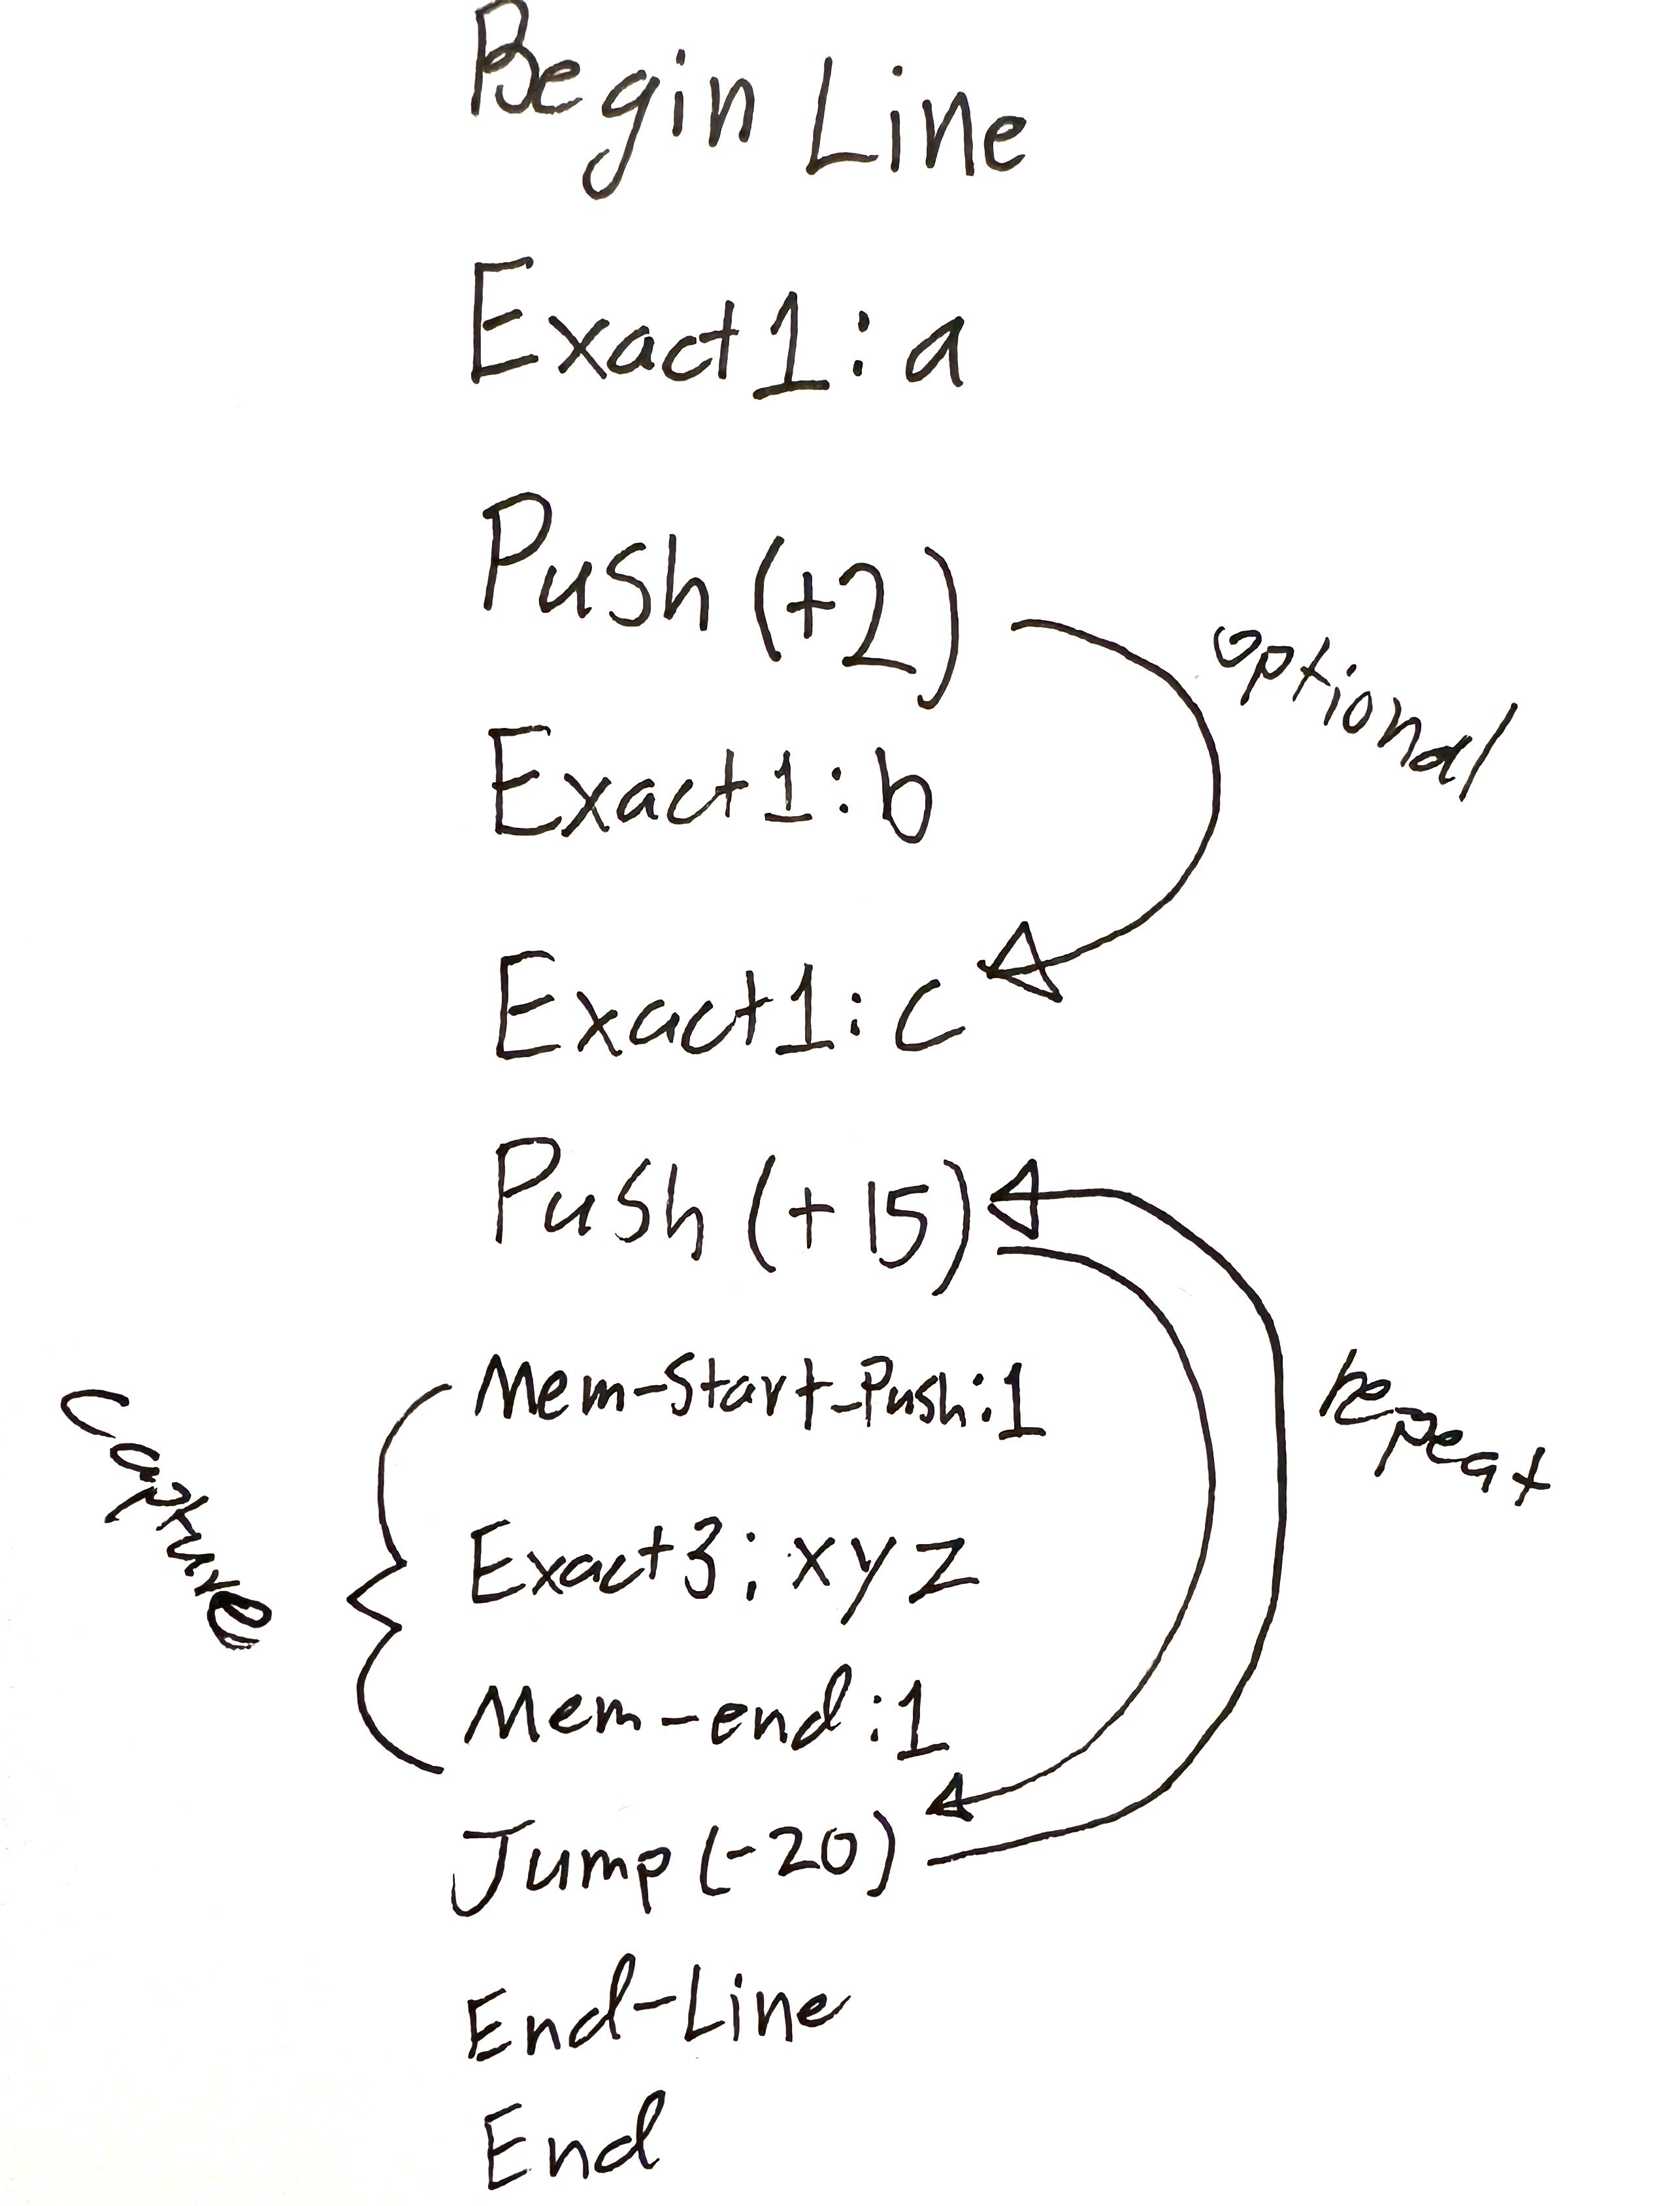 Begin Line
Exact1:a
Push (+2)
optional
Exact1:b
Exact1:c
Push (+15)
repeat
Mem-Start-Push:1
Capture
Exact3:xyz
Mem-end:1
Jump(-20)
End-Line
End